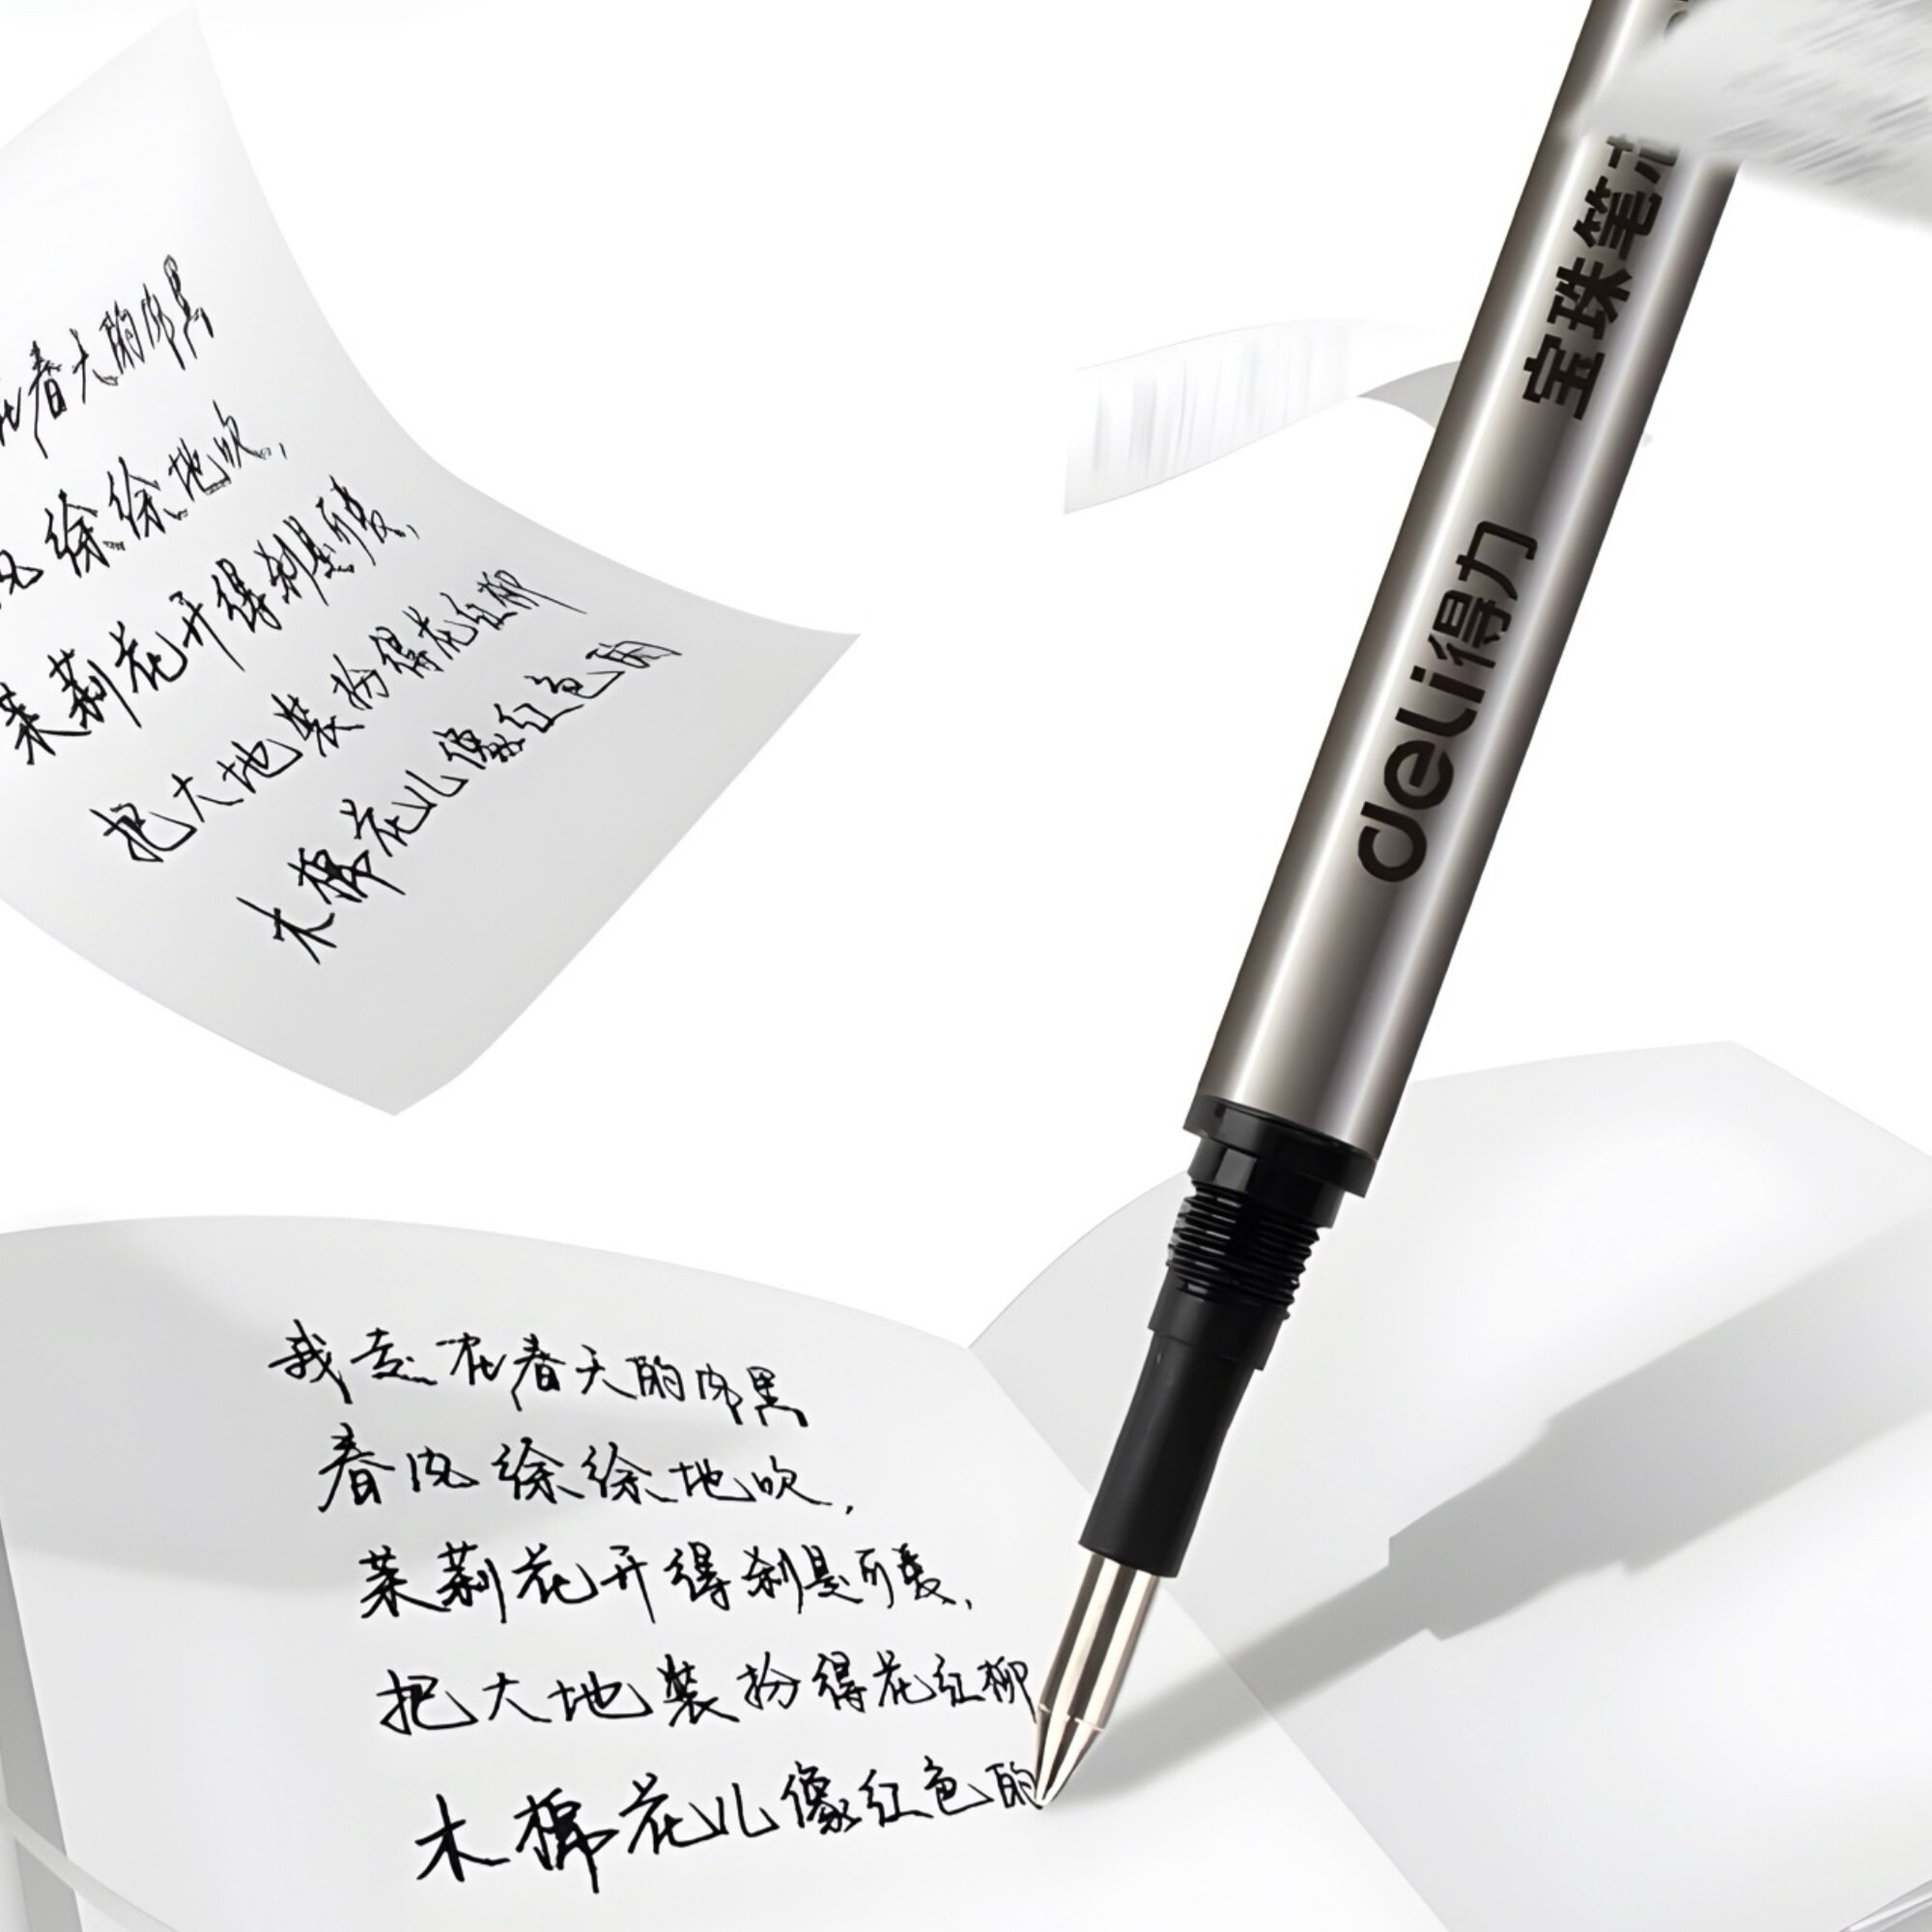 在春天的
风徐徐地吹，
茉莉花开得刹是可爱，
把大地装扮得花红柳
木棉花儿像红色的
deli得力 宝珠笔
我走在春天的
春风徐徐地吹，
茉莉花开得刹是可爱，
把大地装扮得花红柳
木棉花儿像红色的